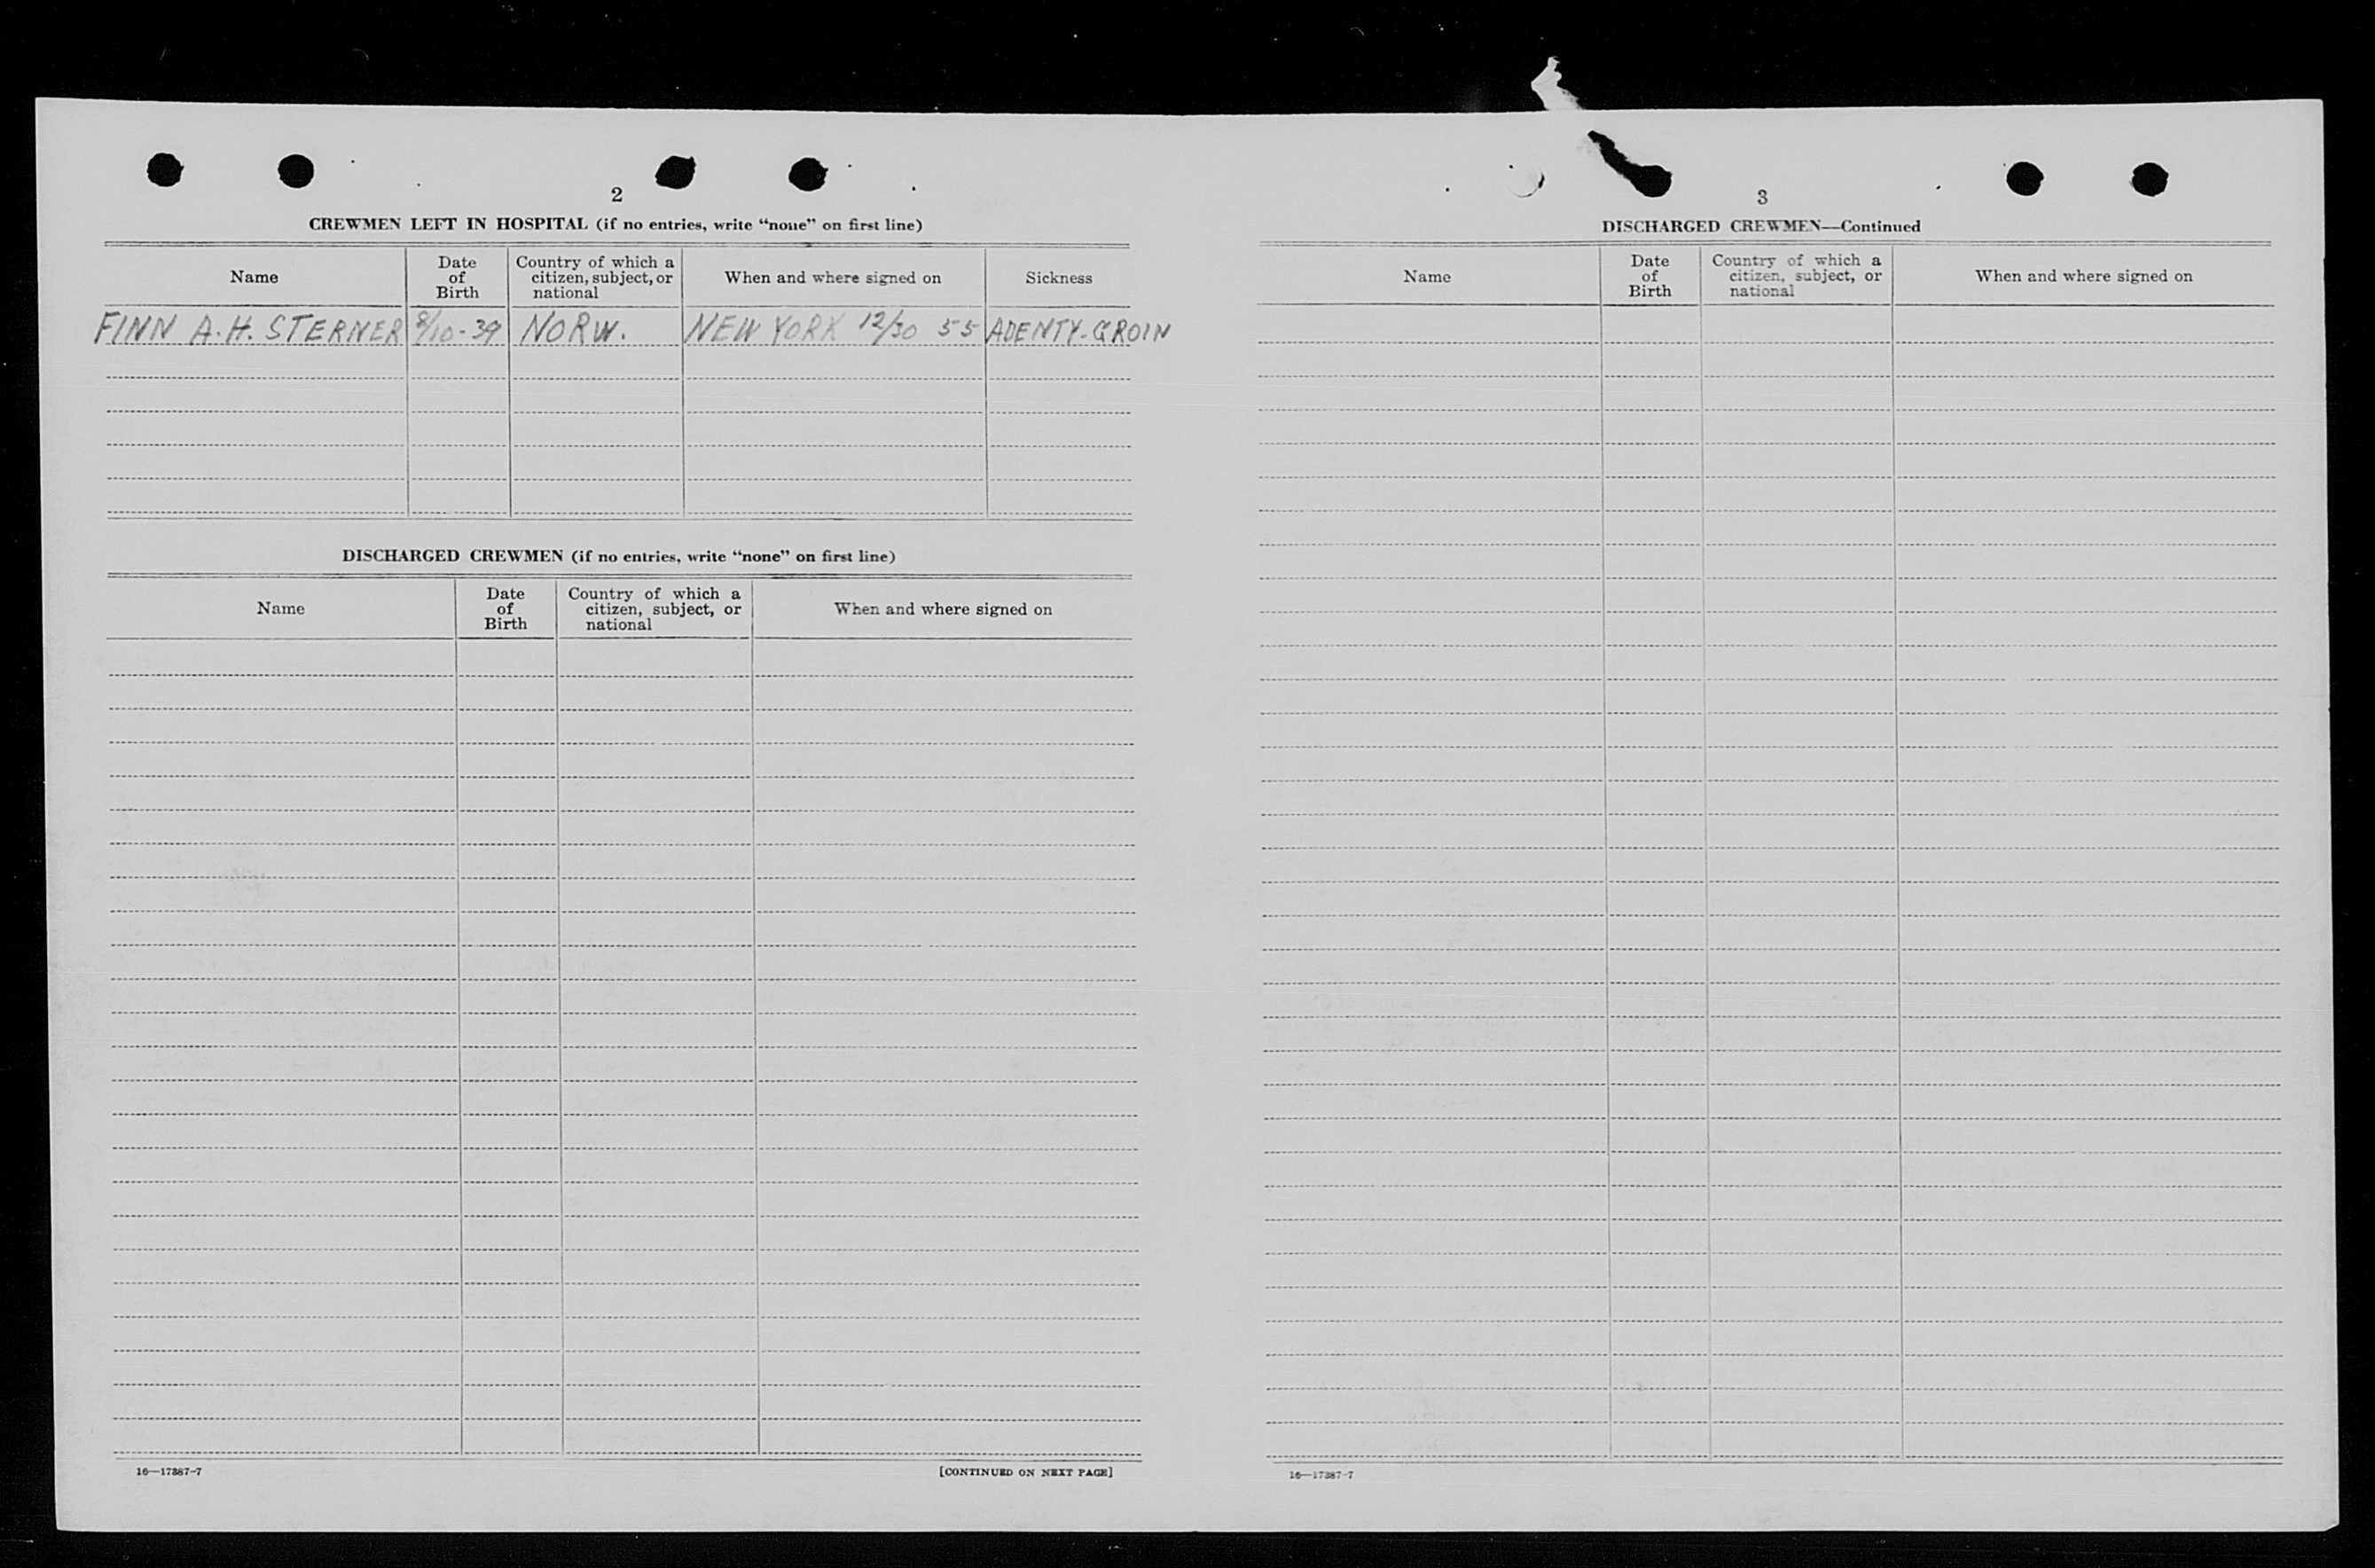 2
CREWMEN LEFT IN HOSPITAL (if no entries, write “none” on first line)
Name
Date
of
Birth
Country of which a
citizen, subject, or
national
When and where signed on
Sickness
FINN A. H. STERNER 8/10-39 NORW. NEW YORK 12/30 55 ADENTY-GROIN
DISCHARGED CREWMEN (if no entries, write “none” on first line)
Name
Date
of
Birth
Country of which a
citizen, subject, or
national
When and where signed on
16—17387-7
[CONTINUED ON NEXT PAGE]
3
DISCHARGED CREWMEN—Continued
Name
Date
of
Birth
Country of which a
citizen, subject, or
national
When and where signed on
16—17387-7